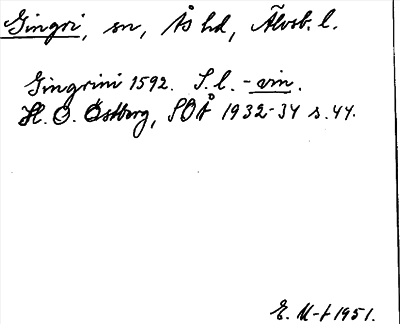 Gingri, sn, Ås hd, Älvsb. l.
Gingrini 1592. S. l. - vin.
H. O. Östberg, SOÅ 1932-34 s. 44.
E. M-t 1951.